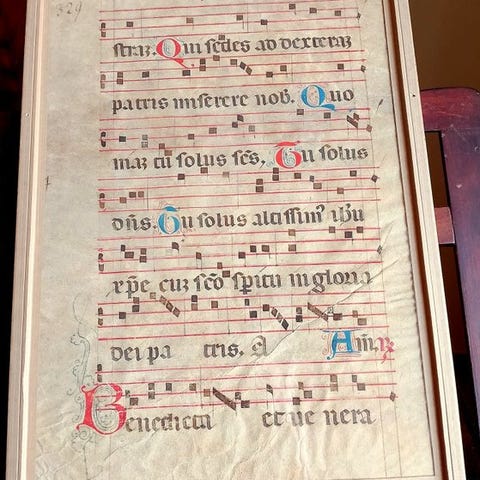 329
straʒ. Qui sedes ad dexteraʒ
patris miserere nob̄. Quo
niaʒ tu solus sc̄s, Tu solus
dn̄s. Tu solus altissimꝰ ih̄u
xp̄e cuʒ sc̄o sp̄iritu in gloria
dei pa tris, A Am̄. aʒ
Benedicta et ue nera